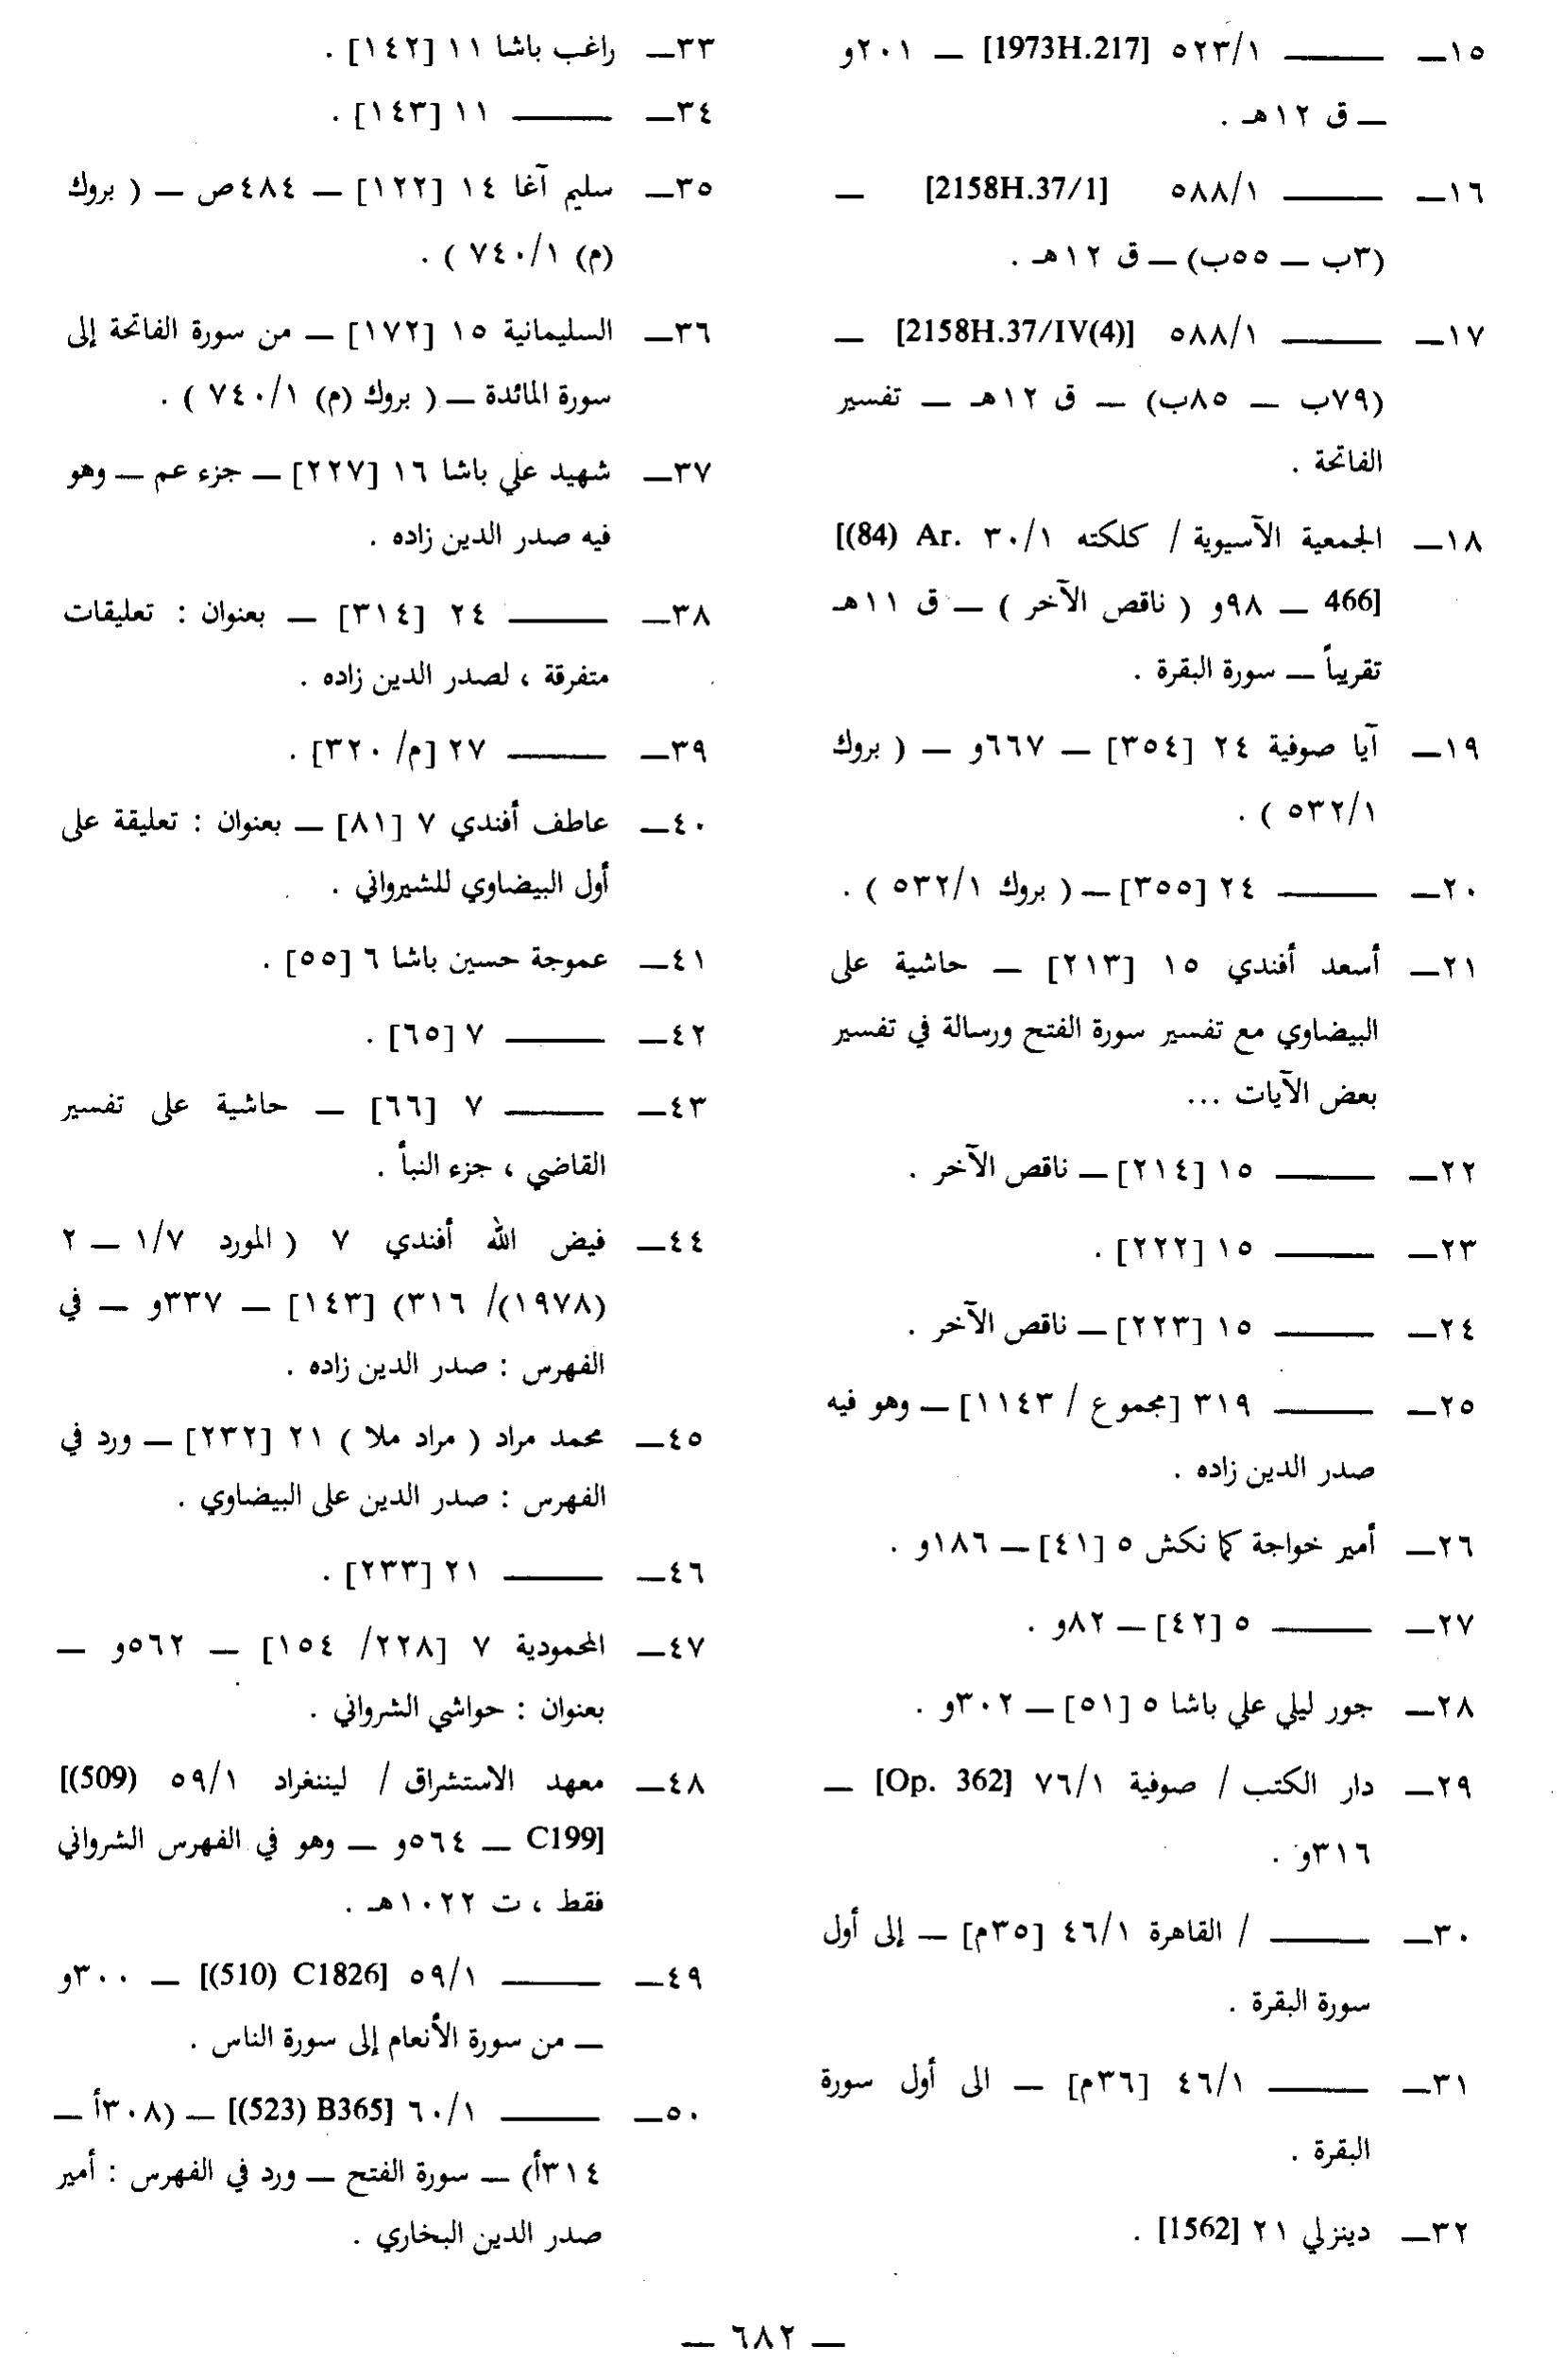 ١٥ــ ــــــ ٥٢٣/١ [1973H.217] ــ ٢٠١و
ــ ق ١٢هـ .
١٦ــ ــــــ ٥٨٨/١ [2158H.37/1] ــ
(٣ب ــ ٥٥ب) ــ ق ١٢هـ .
١٧ــ ــــــ ٥٨٨/١ [2158H.37/IV(4)] ــ
(٧٩ب ــ ٨٥ب) ــ ق ١٢هـ ــ تفسير
الفاتحة .
١٨ــ الجمعية الآسيوية / كلكته ٣٠/١ [(84) Ar.
466] ــ ٩٨و ( ناقص الآخر ) ــ ق ١١هـ
تقريباً ــ سورة البقرة .
١٩ــ آيا صوفية ٢٤ [٣٥٤] ــ ٦٦٧و ــ ( بروك
٥٣٢/١ ) .
٢٠ــ ــــــ ٢٤ [٣٥٥] ــ ( بروك ٥٣٢/١ ) .
٢١ــ أسعد أفندي ١٥ [٢١٣] ــ حاشية على
البيضاوي مع تفسير سورة الفتح ورسالة في تفسير
بعض الآيات ...
٢٢ــ ــــــ ١٥ [٢١٤] ــ ناقص الآخر .
٢٣ــ ــــــ ١٥ [٢٢٢] .
٢٤ــ ــــــ ١٥ [٢٢٣] ــ ناقص الآخر .
٢٥ــ ــــــ ٣١٩ [مجموع / ١١٤٣] ــ وهو فيه
صدر الدين زاده .
٢٦ــ أمير خواجة كما نكش ٥ [٤١] ــ ١٨٦و .
٢٧ــ ــــــ ٥ [٤٢] ــ ٨٢و .
٢٨ــ جور ليلي علي باشا ٥ [٥١] ــ ٣٠٢و .
٢٩ــ دار الكتب / صوفية ٧٦/١ [Op. 362] ــ
٣١٦و .
٣٠ــ ــــــ / القاهرة ٤٦/١ [٣٥م] ــ إلى أول
سورة البقرة .
٣١ــ ــــــ ٤٦/١ [٣٦م] ــ الى أول سورة
البقرة .
٣٢ــ دينزلي ٢١ [1562] .
٣٣ــ راغب باشا ١١ [١٤٢] .
٣٤ــ ــــــ ١١ [١٤٣] .
٣٥ــ سليم آغا ١٤ [١٢٢] ــ ٤٨٤ص ــ ( بروك
(م) ٧٤٠/١ ) .
٣٦ــ السليمانية ١٥ [١٧٢] ــ من سورة الفاتحة إلى
سورة المائدة ــ ( بروك (م) ٧٤٠/١ ) .
٣٧ــ شهيد علي باشا ١٦ [٢٢٧] ــ جزء عم ــ وهو
فيه صدر الدين زاده .
٣٨ــ ــــــ ٢٤ [٣١٤] ــ بعنوان : تعليقات
متفرقة ، لصدر الدين زاده .
٣٩ــ ــــــ ٢٧ [م/ ٣٢٠] .
٤٠ــ عاطف أفندي ٧ [٨١] ــ بعنوان : تعليقة على
أول البيضاوي للشيرواني .
٤١ــ عموجة حسين باشا ٦ [٥٥] .
٤٢ــ ــــــ ٧ [٦٥] .
٤٣ــ ــــــ ٧ [٦٦] ــ حاشية على تفسير
القاضي ، جزء النبأ .
٤٤ــ فيض الله أفندي ٧ ( المورد ١/٧ ــ ٢
(١٩٧٨)/ ٣١٦) [١٤٣] ــ ٣٣٧و ــ في
الفهرس : صدر الدين زاده .
٤٥ــ محمد مراد ( مراد ملا ) ٢١ [٢٣٢] ــ ورد في
الفهرس : صدر الدين على البيضاوي .
٤٦ــ ــــــ ٢١ [٢٣٣] .
٤٧ــ المحمودية ٧ [٢٢٨/ ١٥٤] ــ ٥٦٢و ــ
بعنوان : حواشي الشرواني .
٤٨ــ معهد الاستشراق / ليننغراد ٥٩/١ [(509)
C199] ــ ٥٦٤و ــ وهو في الفهرس الشرواني
فقط ، ت ١٠٢٢هـ .
٤٩ــ ــــــ ٥٩/١ [(510) C1826] ــ ٣٠٠و
ــ من سورة الأنعام إلى سورة الناس .
٥٠ــ ــــــ ٦٠/١ [(523) B365] ــ (٣٠٨أ ــ
٣١٤أ) ــ سورة الفتح ــ ورد في الفهرس : أمير
صدر الدين البخاري .
ــ ٦٨٢ ــ